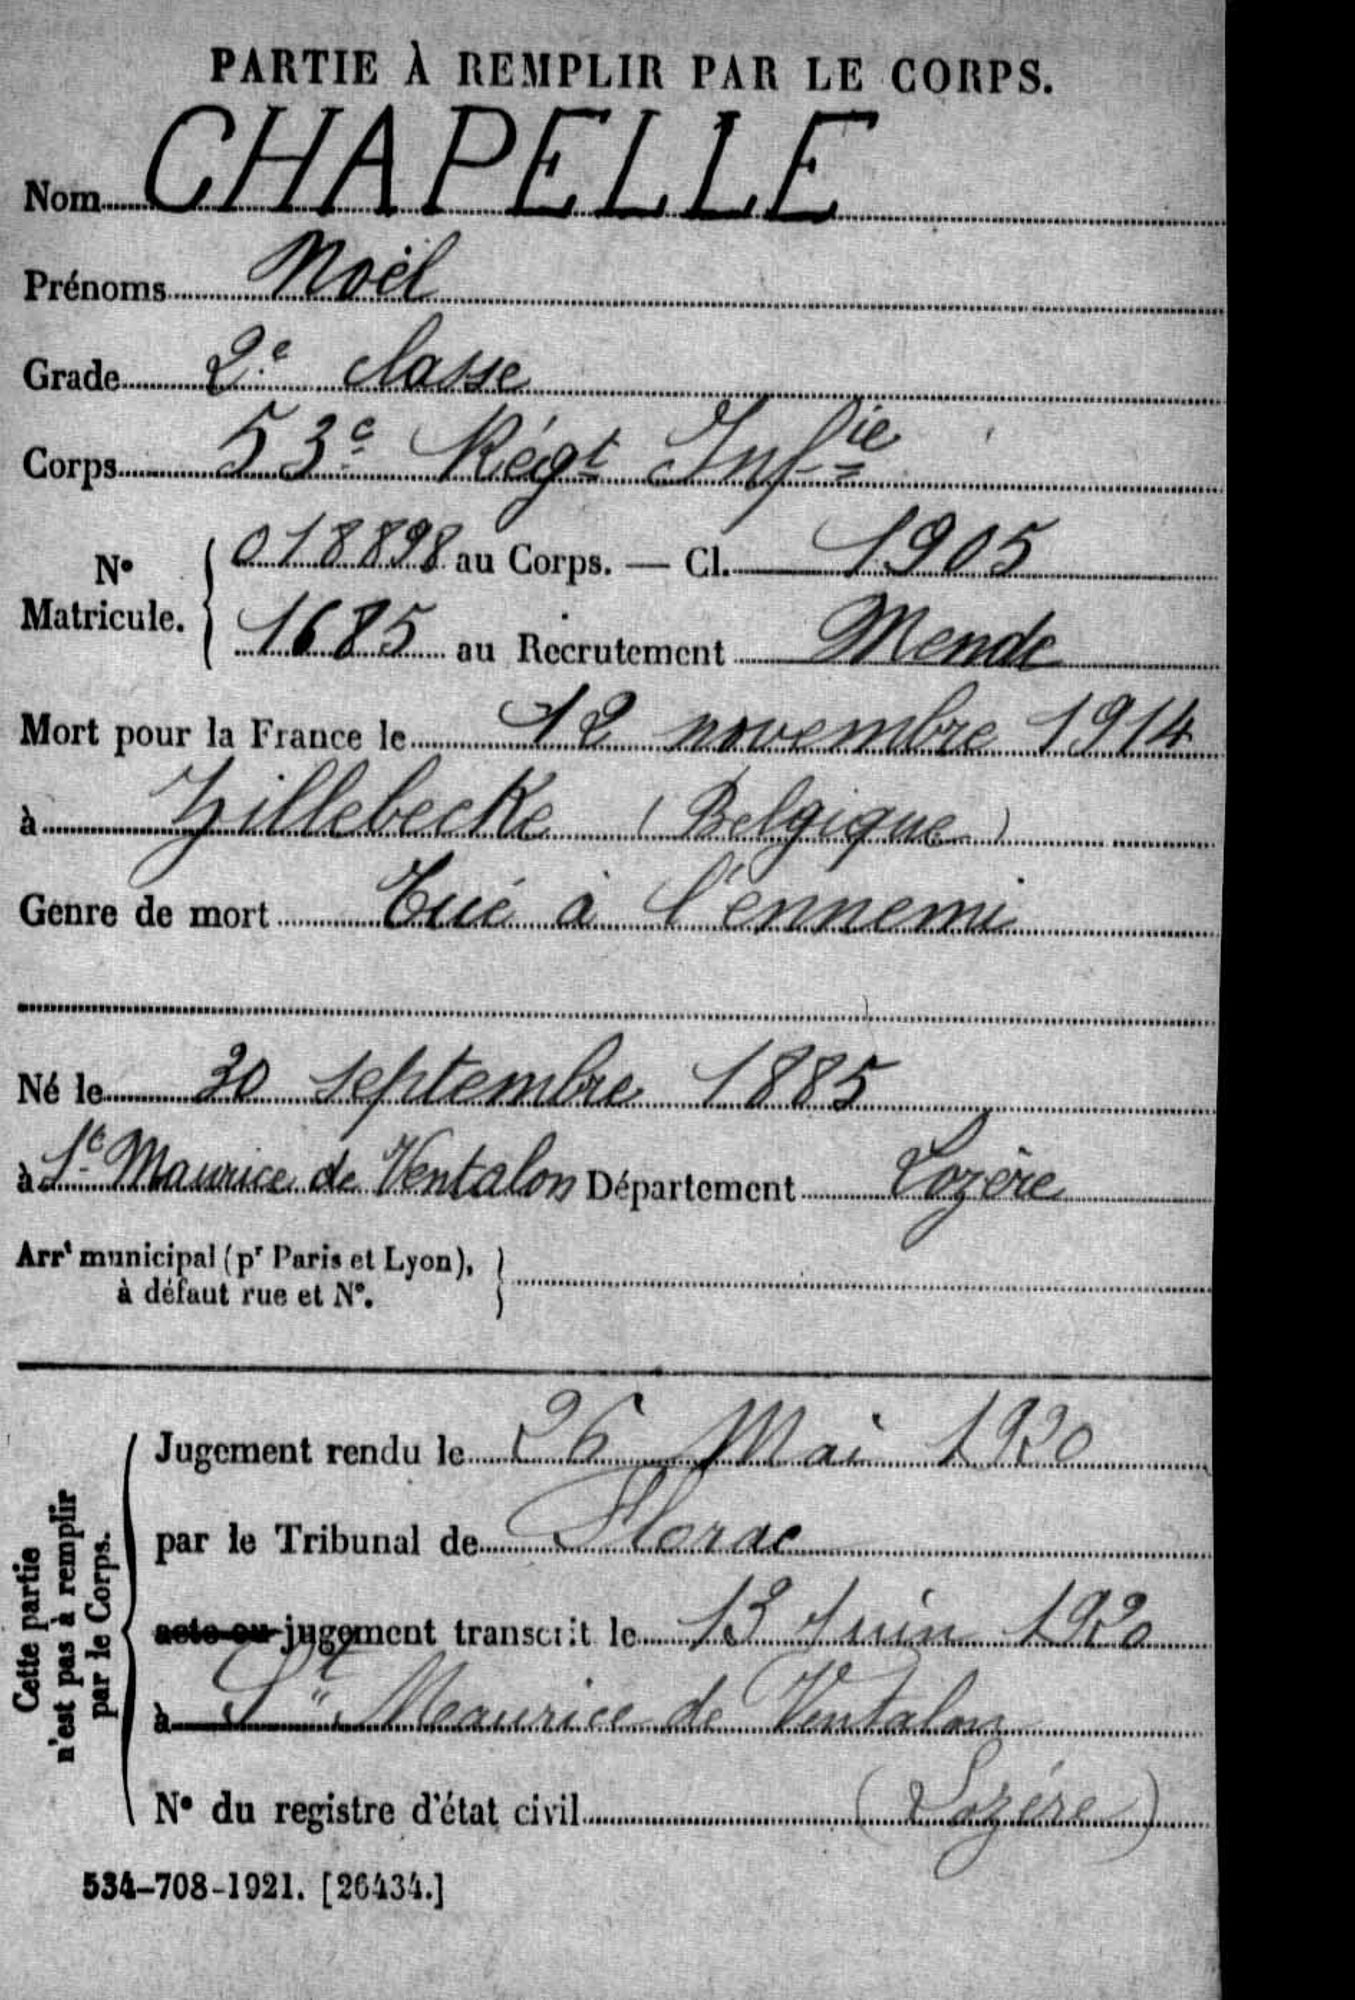 PARTIE À REMPLIR PAR LE CORPS.
Nom CHAPELLE
Prénoms Noël
Grade 2e classe
Corps 53e Régt Infie
No Matricule. { 018898 au Corps. — Cl. 1905
1685 au Recrutement Mende
Mort pour la France le 12 novembre 1914
à Zillebecke (Belgique)
Genre de mort Tué à l'ennemi
Né le 30 septembre 1885
à St Maurice de Ventalon Département Lozère
Arrt municipal (pr Paris et Lyon),
à défaut rue et No.
Cette partie
n'est pas à remplir
par le Corps.
Jugement rendu le 26 Mai 1920
par le Tribunal de Florac
acte ou jugement transcrit le 13 Juin 1920
à St Maurice de Ventalon
No du registre d'état civil (Lozère)
534-708-1921. [26434.]